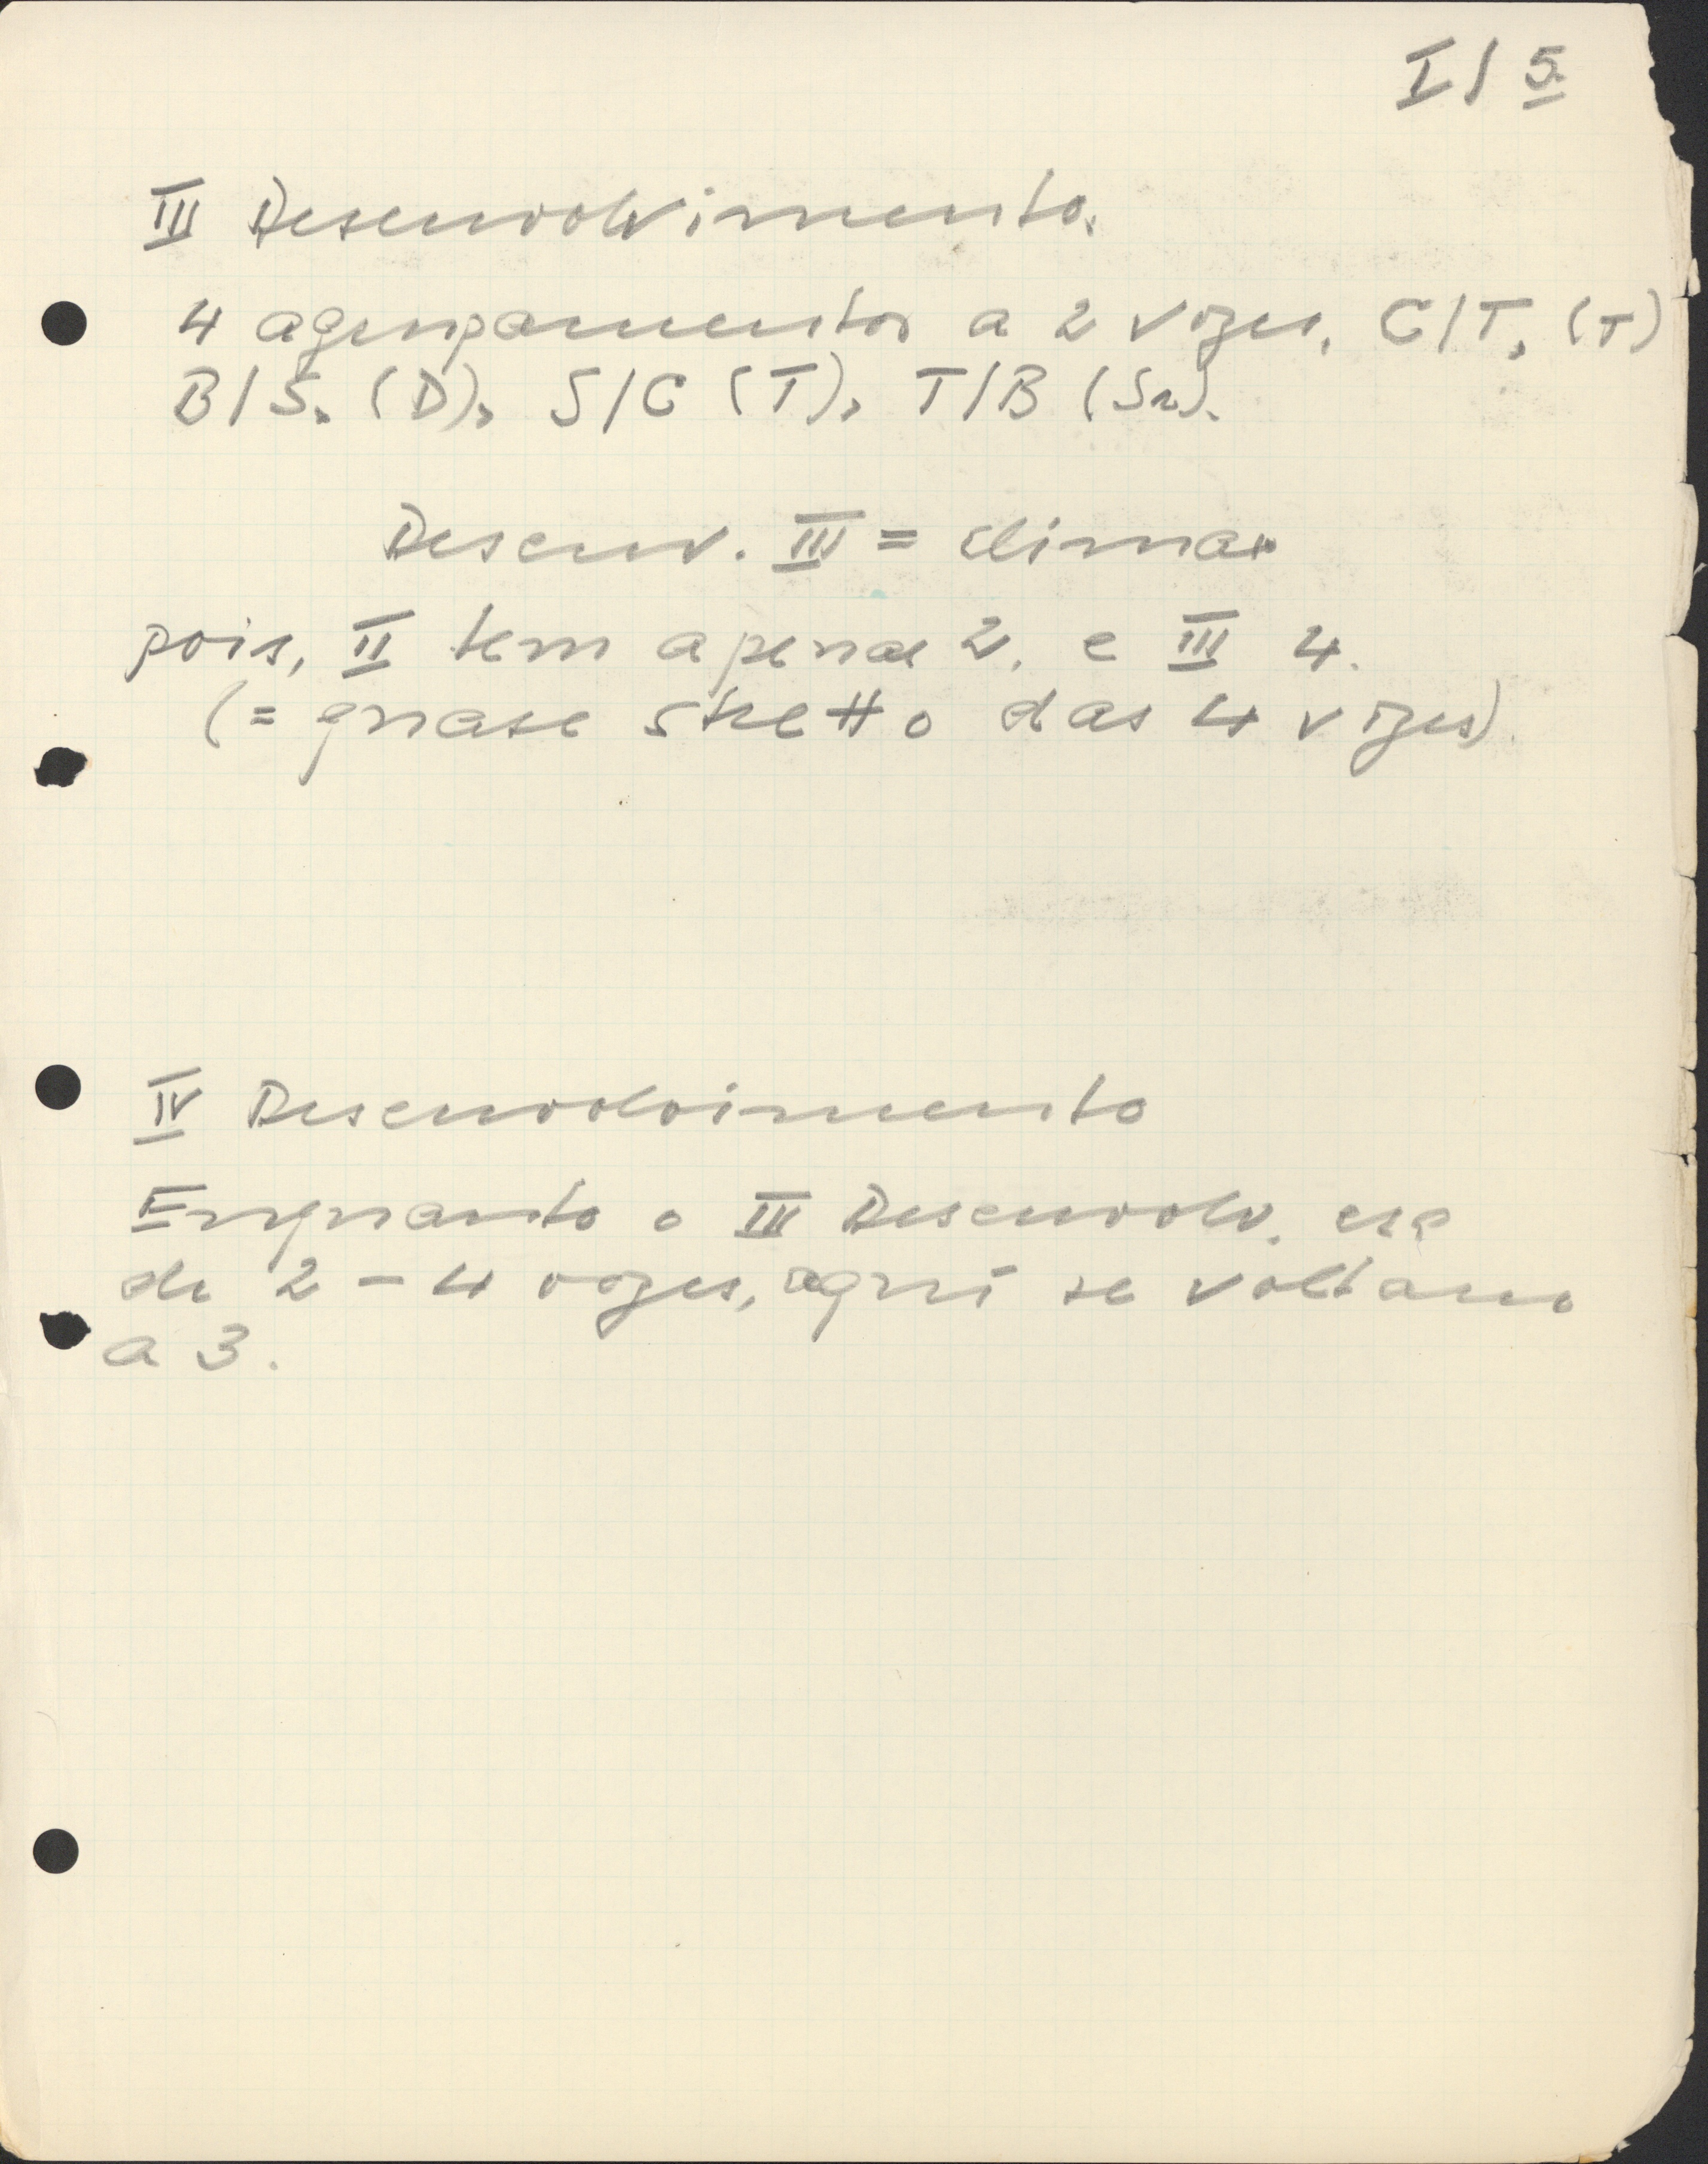 I / 5.
III Desenvolvimento.
4 agrupamentos a 2 vozes, C/T, (T)
B/S. (D), S/C (T), T/B (Sr).
Desenv. III = climax
pois, II tem apenas 2, e III 4.
(= quase stretto das 4 vozes).
IV Desenvolvimento
Enquanto o III Desenvolv. era
de 2 - 4 vozes, aqui se voltam
a 3.